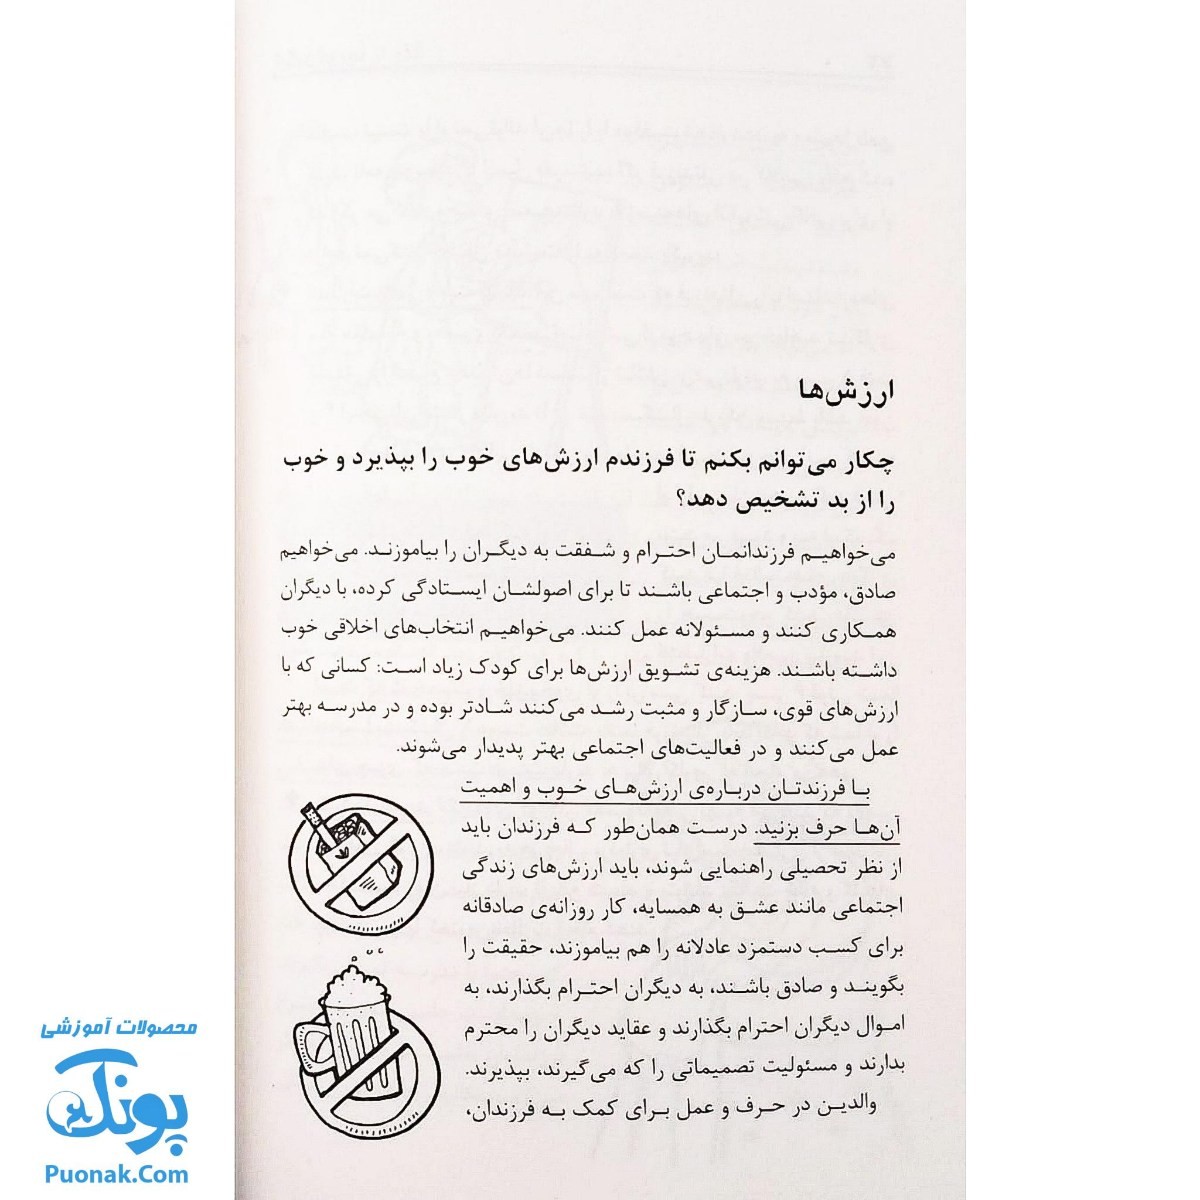 ارزش‌ها
چکار می‌توانم بکنم تا فرزندم ارزش‌های خوب را بپذیرد و خوب
را از بد تشخیص دهد؟
می‌خواهیم فرزندانمان احترام و شفقت به دیگران را بیاموزند. می‌خواهیم
صادق، مؤدب و اجتماعی باشند تا برای اصولشان ایستادگی کرده، با دیگران
همکاری کنند و مسئولانه عمل کنند. می‌خواهیم انتخاب‌های اخلاقی خوب
داشته باشند. هزینه‌ی تشویق ارزش‌ها برای کودک زیاد است: کسانی که با
ارزش‌های قوی، سازگار و مثبت رشد می‌کنند شادتر بوده و در مدرسه بهتر
عمل می‌کنند و در فعالیت‌های اجتماعی بهتر پدیدار می‌شوند.
با فرزندتان درباره‌ی ارزش‌های خوب و اهمیت
آن‌ها حرف بزنید. درست همان‌طور که فرزندان باید
از نظر تحصیلی راهنمایی شوند، باید ارزش‌های زندگی
اجتماعی مانند عشق به همسایه، کار روزانه‌ی صادقانه
برای کسب دستمزد عادلانه را هم بیاموزند، حقیقت را
بگویند و صادق باشند، به دیگران احترام بگذارند، به
اموال دیگران احترام بگذارند و عقاید دیگران را محترم
بدارند و مسئولیت تصمیماتی را که می‌گیرند، بپذیرند.
والدین در حرف و عمل برای کمک به فرزندان،
محصولات آموزشی
پونک
Puonak.Com